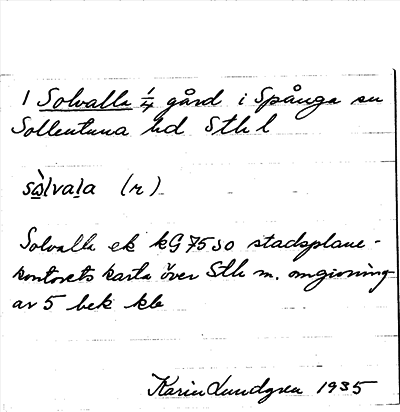 1 Solvalla 1/4 gård i Spånga sn
Sollentuna hd Sthl l
sòlvala (r)
Solvalla ek kG7530 stadsplane-
kontorets karta över Sthl m. omgivning
av 5 bek kb
Karin Lundgren 1935